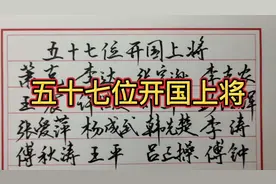 五十七位开国上将
萧克 李达 张宗逊 李志民
五十七位开国上将
张爱萍 杨成武 韩先楚 李涛
傅秋涛 王平 吕正操 傅钟